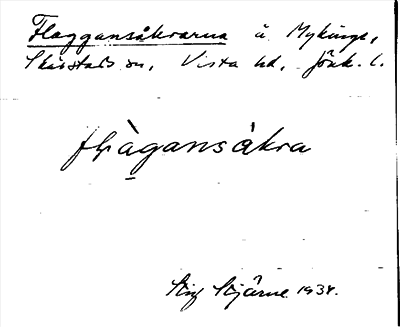 Flaggansåkrarna å Mykinge,
Skärstads sn, Vista hd, Jönk. l.
flàgansåkra
Stig Stjärne 1934.